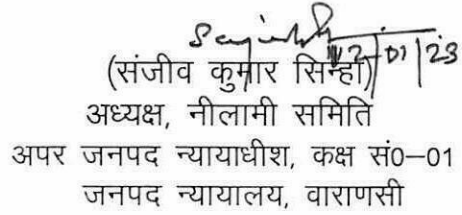 12-01-23
(संजीव कुमार सिन्हा)
अध्यक्ष, नीलामी समिति
अपर जनपद न्यायाधीश, कक्ष सं0-01
जनपद न्यायालय, वाराणसी